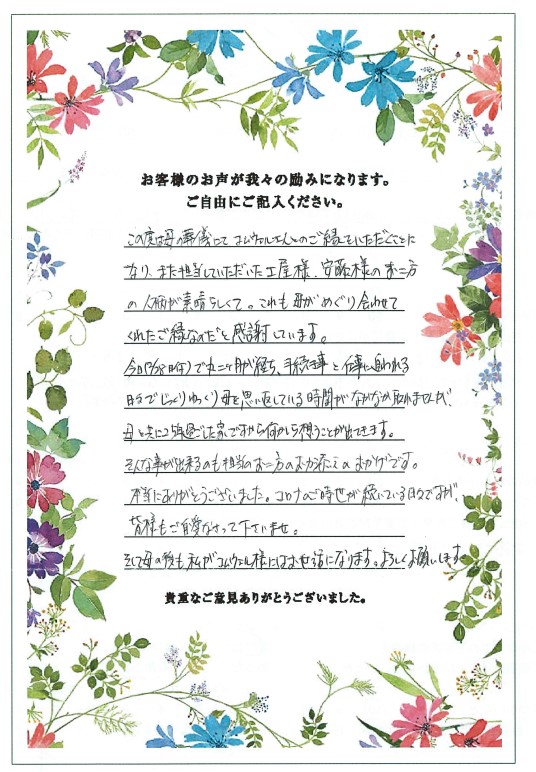 お客様のお声が我々の励みになります。
ご自由にご記入ください。
この度は母の葬儀にてコムウェルさんとのご縁をいただくことに
なり、また担当していただいた土屋様、安藤様のお二方
の人柄が素晴らしくて。これも母がめぐり合わせて
くれたご縁なのだと感謝しています。
今日で丸二ヶ月が経ち、手続き事と仕事に追われる
日々でじっくりゆっくり母を思い返している時間がなかなか取れませんが、
母と共に過ごした家で何かしら想うことが出てきます。
そんな事が出来るのも担当のお二方のお力添えのおかげです。
本当にありがとうございました。コロナのご時世が続いている日々ですが、
皆様もご自愛なさって下さいませ。
そして母の後も私がコムウェル様にはお世話になります。よろしくお願いします。
貴重なご意見ありがとうございました。